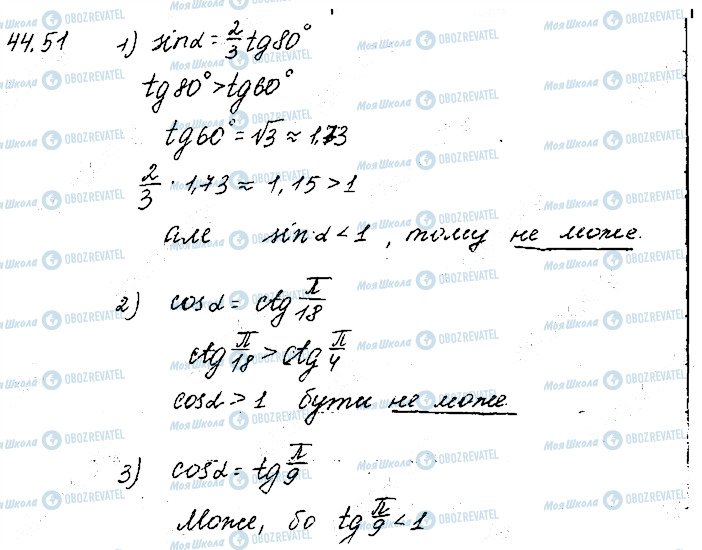 44.51 1) sinα = 2/3 tg80°
tg80° > tg60°
tg60° = √3 ≈ 1,73
2/3 · 1,73 ≈ 1,15 > 1
але sinα < 1, тому не може.
2) cosα = ctg π/18
ctg π/18 > ctg π/4
cosα > 1 бути не може.
3) cosα = tg π/9
Може, бо tg π/9 < 1
МояШкола OBOZREVATEL